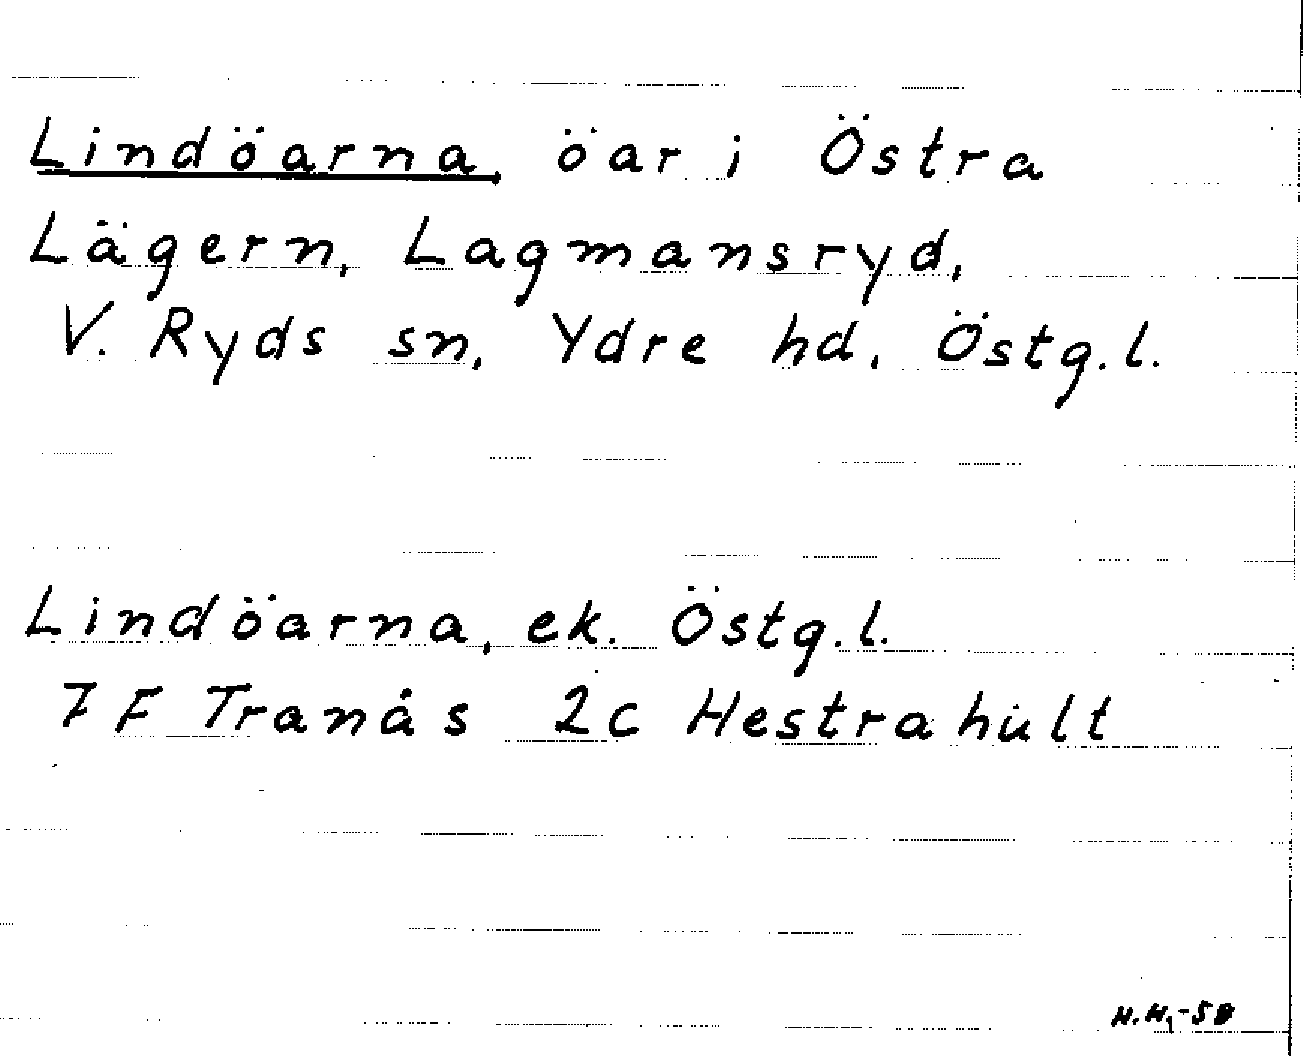 Lindöarna, öar i Östra
Lägern, Lagmansryd,
V. Ryds sn, Ydre hd, Östg.l.
Lindöarna, ek. Östg.l.
7F Tranås 2c Hestrahult